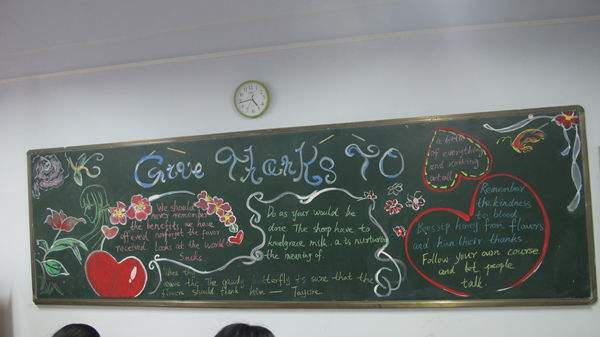 Give Thanks To
We should
never remember
the benefits we have
offered nor forget the favor
received. Looks at the world
Smils
Do as your would be
done The sheep have to
kneelgrace milk. a is nurturance
the meaning of.
the gaudy butterfly is sure that the
flowers should thank him — Tagore.
a little
of everything
and nothing
at all
Remember
the kindness
to blood
Bees sip honey from flowers
and hum their thanks
Follow your own course
and let people
talk.